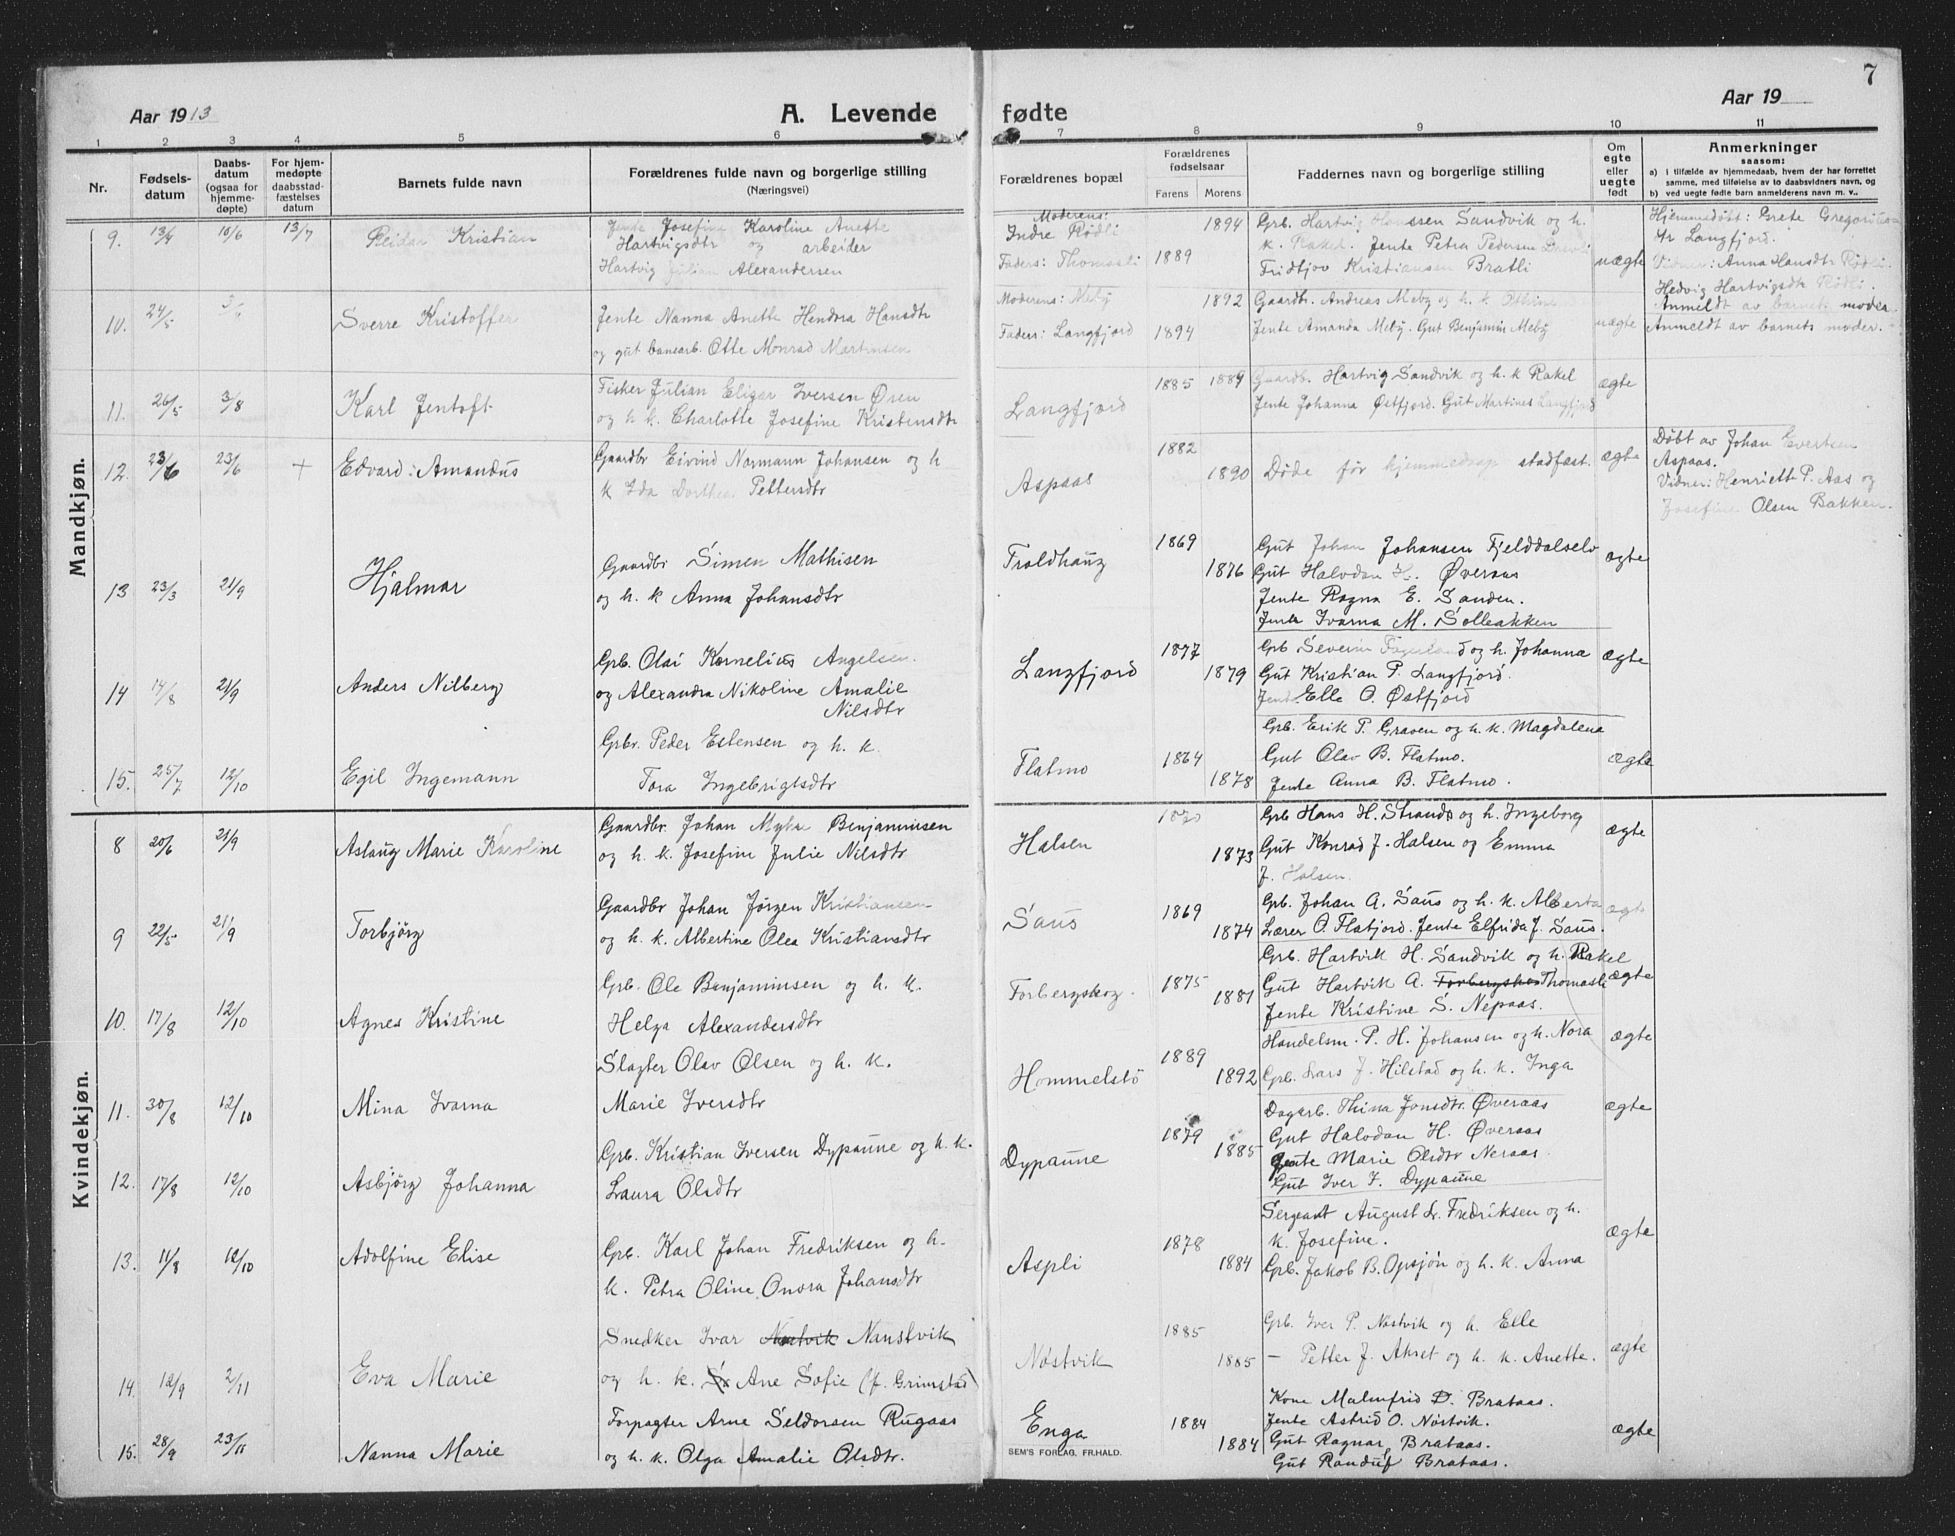 7
Aar 1913
A. Levende
fødte
Aar 19
1 2 3 4 5 6 7 8 9 10 11
Nr.
Fødsels-
datum
Daabs-
datum
(ogsaa for
hjemme-
døpte)
For hjem-
medøpte
daabsstad-
fæstelses
datum
Barnets fulde navn
Forældrenes fulde navn og borgerlige stilling
(Næringsvei)
Forældrenes bopæl
Forældrenes
fødselsaar
Farens Morens
Faddernes navn og borgerlige stilling
Om
egte
eller
uegte
født
Anmerkninger
saasom:
a) i tilfælde av hjemmedaab, hvem der har forrettet
samme, med tilføielse av to daabsvidners navn, og
b) ved uegte fødte barn anmelderens navn m. v..
Mandkjøn.
9. 13/4 10/6 13/7 Reidar Kristian
Jente Josefine Karoline Anette
Hartvigsdtr og arbeider
Hartvig Julian Alexandersen
Moderens:
Indre Rødli
Faders: Thomasli
1889 1894
Grb. Hartvig Hanssen Sandvik og h.
k. Rakel. Jente Petra Pedersen
Fridtjov Kristiansen Bratli
uægte
Hjemmedøbt: Grete
Langfjord.
Vidner: Anna Hansdtr Rødli.
Hedvig Hartvigsdtr Rødli.
Anmeldt av barnets moder.
10. 24/5 Sverre Kristoffer
Jente Nanna Anette Hendora Hansdtr
og gut banearb. Otte Monrad Martinsen
Moderens: Meby
Faders: Langfjord
1894 1892
Gaardbr. Andreas Meby og h. k.
Jente Amanda Meby. Gut Benjamin Meby
uægte
Anmeldt av barnets moder.
11. 26/5 3/8 Karl Jentoft
Fisker Julian Eligar Iversen Øren
og h. k. Charlotte Josefine Kristensdtr
Langfjord
1885 1889
Gaardb. Hartvig Sandvik og h. k Rakel
Jente Johanna Østfjord. Gut Martines Langfjord
ægte
12. 23/6 23/6 + Edvard Amandus
Gaardbr Eivind Normann Johansen og h
k Ida Dorthea Pettersdtr
Aspaas
1882 1890
Døde før hjemmedaap stadfæst.
ægte
Døbt av Johan Evertsen
Aspaas.
Vidner: Henriette P. Aas og
Josefine Olsen Bakken.
13 23/3 21/9 Hjalmar
Gaardbr Simen Mathisen
og h. k Anna Johansdtr
Troldhaug
1869 1876
Gut Johan Johansen Fjelddalselv
Gut Halvdan H. Øveraas
Jente Ragna E. Sanden.
Jente Ivarna M. Solleakken
ægte
14 14/8 21/9 Anders Nilberg
Grb. Olai Kornelius Angelsen.
og Alexandra Nikoline Amalie
Nilsdtr
Langfjord
1877 1879
Grb Severin Fagerland og h. Johanna
Gut Kristian P. Langfjord.
Jente Elle O. Østfjord
ægte
15. 25/7 12/10 Egil Ingemann
Grbr. Peder Estensen og h. k.
Tora Ingebrigtsdtr
Flatmo
1864 1878
Grb. Erik P. Graven og h. k. Magdalena
Gut Olav B. Flatmo.
Jente Anna B. Flatmo.
ægte
Kvindekjøn.
8 20/6 21/9 Aslaug Marie Karoline
Gaardbr. Johan Myhr Benjaminsen
og h. k. Josefine Julie Nilsdtr
Halsen
1870 1873
Grb Hans H. Strand og h. Ingeborg
Gut Konrad J. Halsen og Emma
J. Halsen.
ægte
9 22/5 21/9 Torbjörg
Gaardbr Johan Jörgen Kristiansen
og h. k. Albertine Olea Kristiansdtr
Saus
1869 1874
Grb. Johan A. Saus og h. k. Alberta
Lærer O. Flatjord. Jente Elfrida J. Saus.
ægte
10. 17/8 12/10 Agnes Kristine
Grb. Ole Benjaminsen og h. k.
Helga Alexandersdtr
Forbergskog.
1875 1881
Grb. Hartvik H. Sandvik og h. Rakel
Gut Hartvik A. Forbergskog Thomasli
Jente Kristine S. Nepaas.
ægte
11. 30/8 12/10 Mina Ivarna
Slagter Olav Olsen og h. k.
Marie Iversdtr
Hommelstö
1889 1892
Handelsm. P. H. Johansen og h. Nora
Grb. Lars J. Hilstad og h. k. Inga
ægte
12. 17/8 12/10 Asbjörg Johanna
Grb. Kristian Iversen Dypaune og h. k.
Laura Olsdtr
Dypaune
1879 1885
Dagarb. Thina Jonsdtr. Øveraas
Gut Halvdan H. Øveraas
Jente Marie Olsdtr Neraas.
Gut Iver I. Dypaune
ægte
13. 11/8 12/10 Adolfine Elise
Grb. Karl Johan Fredriksen og h.
k. Petra Oline Onora Johansdtr
Aspli
1878 1884
Sergeant August L. Fredriksen og h.
k. Josefine.
Grb. Jakob B. Opsjön og h. k. Anna
ægte
14. 12/9 2/11 Eva Marie
Snedker Ivar Nøstvik Nanstvik
og h. k. Ane Sofie (f. Grimstad)
Nöstvik
1885 1885
Grb. Iver P. Nöstvik og h. Elle
— Petter J. Akset og h. k. Anette.
ægte
15. 28/9 23/11 Nanna Marie
Forpagter Arne Seldorsen Rugaas
og h. k. Olga Amalie Olsdtr.
Enga
1884 1884
Kone Malmfrid D. Brataas.
Jente Astrid O. Nöstvik.
Gut Ragnar Brataas.
Gut Randulf Brataas.
ægte
SEM'S FORLAG, FR.HALD.